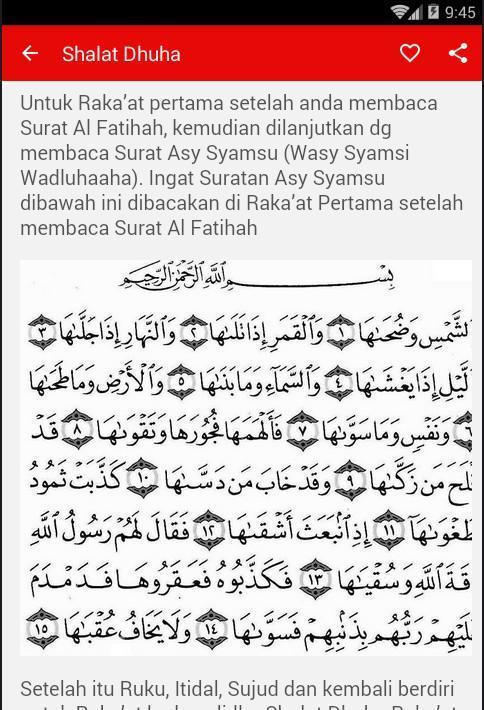 9:45
Shalat Dhuha
Untuk Raka’at pertama setelah anda membaca
Surat Al Fatihah, kemudian dilanjutkan dg
membaca Surat Asy Syamsu (Wasy Syamsi
Wadluhaaha). Ingat Suratan Asy Syamsu
dibawah ini dibacakan di Raka’at Pertama setelah
membaca Surat Al Fatihah
بِسْمِ اللَّهِ الرَّحْمَٰنِ الرَّحِيمِ
الشَّمْسِ وَضُحَىٰهَا ١ وَالْقَمَرِ إِذَا تَلَىٰهَا ٢ وَالنَّهَارِ إِذَا جَلَّىٰهَا ٣
لَّيْلِ إِذَا يَغْشَىٰهَا ٤ وَالسَّمَاءِ وَمَا بَنَىٰهَا ٥ وَالْأَرْضِ وَمَا طَحَىٰهَا
٦ وَنَفْسٍ وَمَا سَوَّىٰهَا ٧ فَأَلْهَمَهَا فُجُورَهَا وَتَقْوَىٰهَا ٨ قَدْ
لَحَ مَن زَكَّىٰهَا ٩ وَقَدْ خَابَ مَن دَسَّىٰهَا ١٠ كَذَّبَتْ ثَمُودُ
طَغْوَىٰهَا ١١ إِذِ انۢبَعَثَ أَشْقَىٰهَا ١٢ فَقَالَ لَهُمْ رَسُولُ اللَّهِ
قَةَ اللَّهِ وَسُقْيَىٰهَا ١٣ فَكَذَّبُوهُ فَعَقَرُوهَا فَدَمْدَمَ
لَيْهِمْ رَبُّهُم بِذَنۢبِهِمْ فَسَوَّىٰهَا ١٤ وَلَا يَخَافُ عُقْبَىٰهَا ١٥
Setelah itu Ruku, Itidal, Sujud dan kembali berdiri